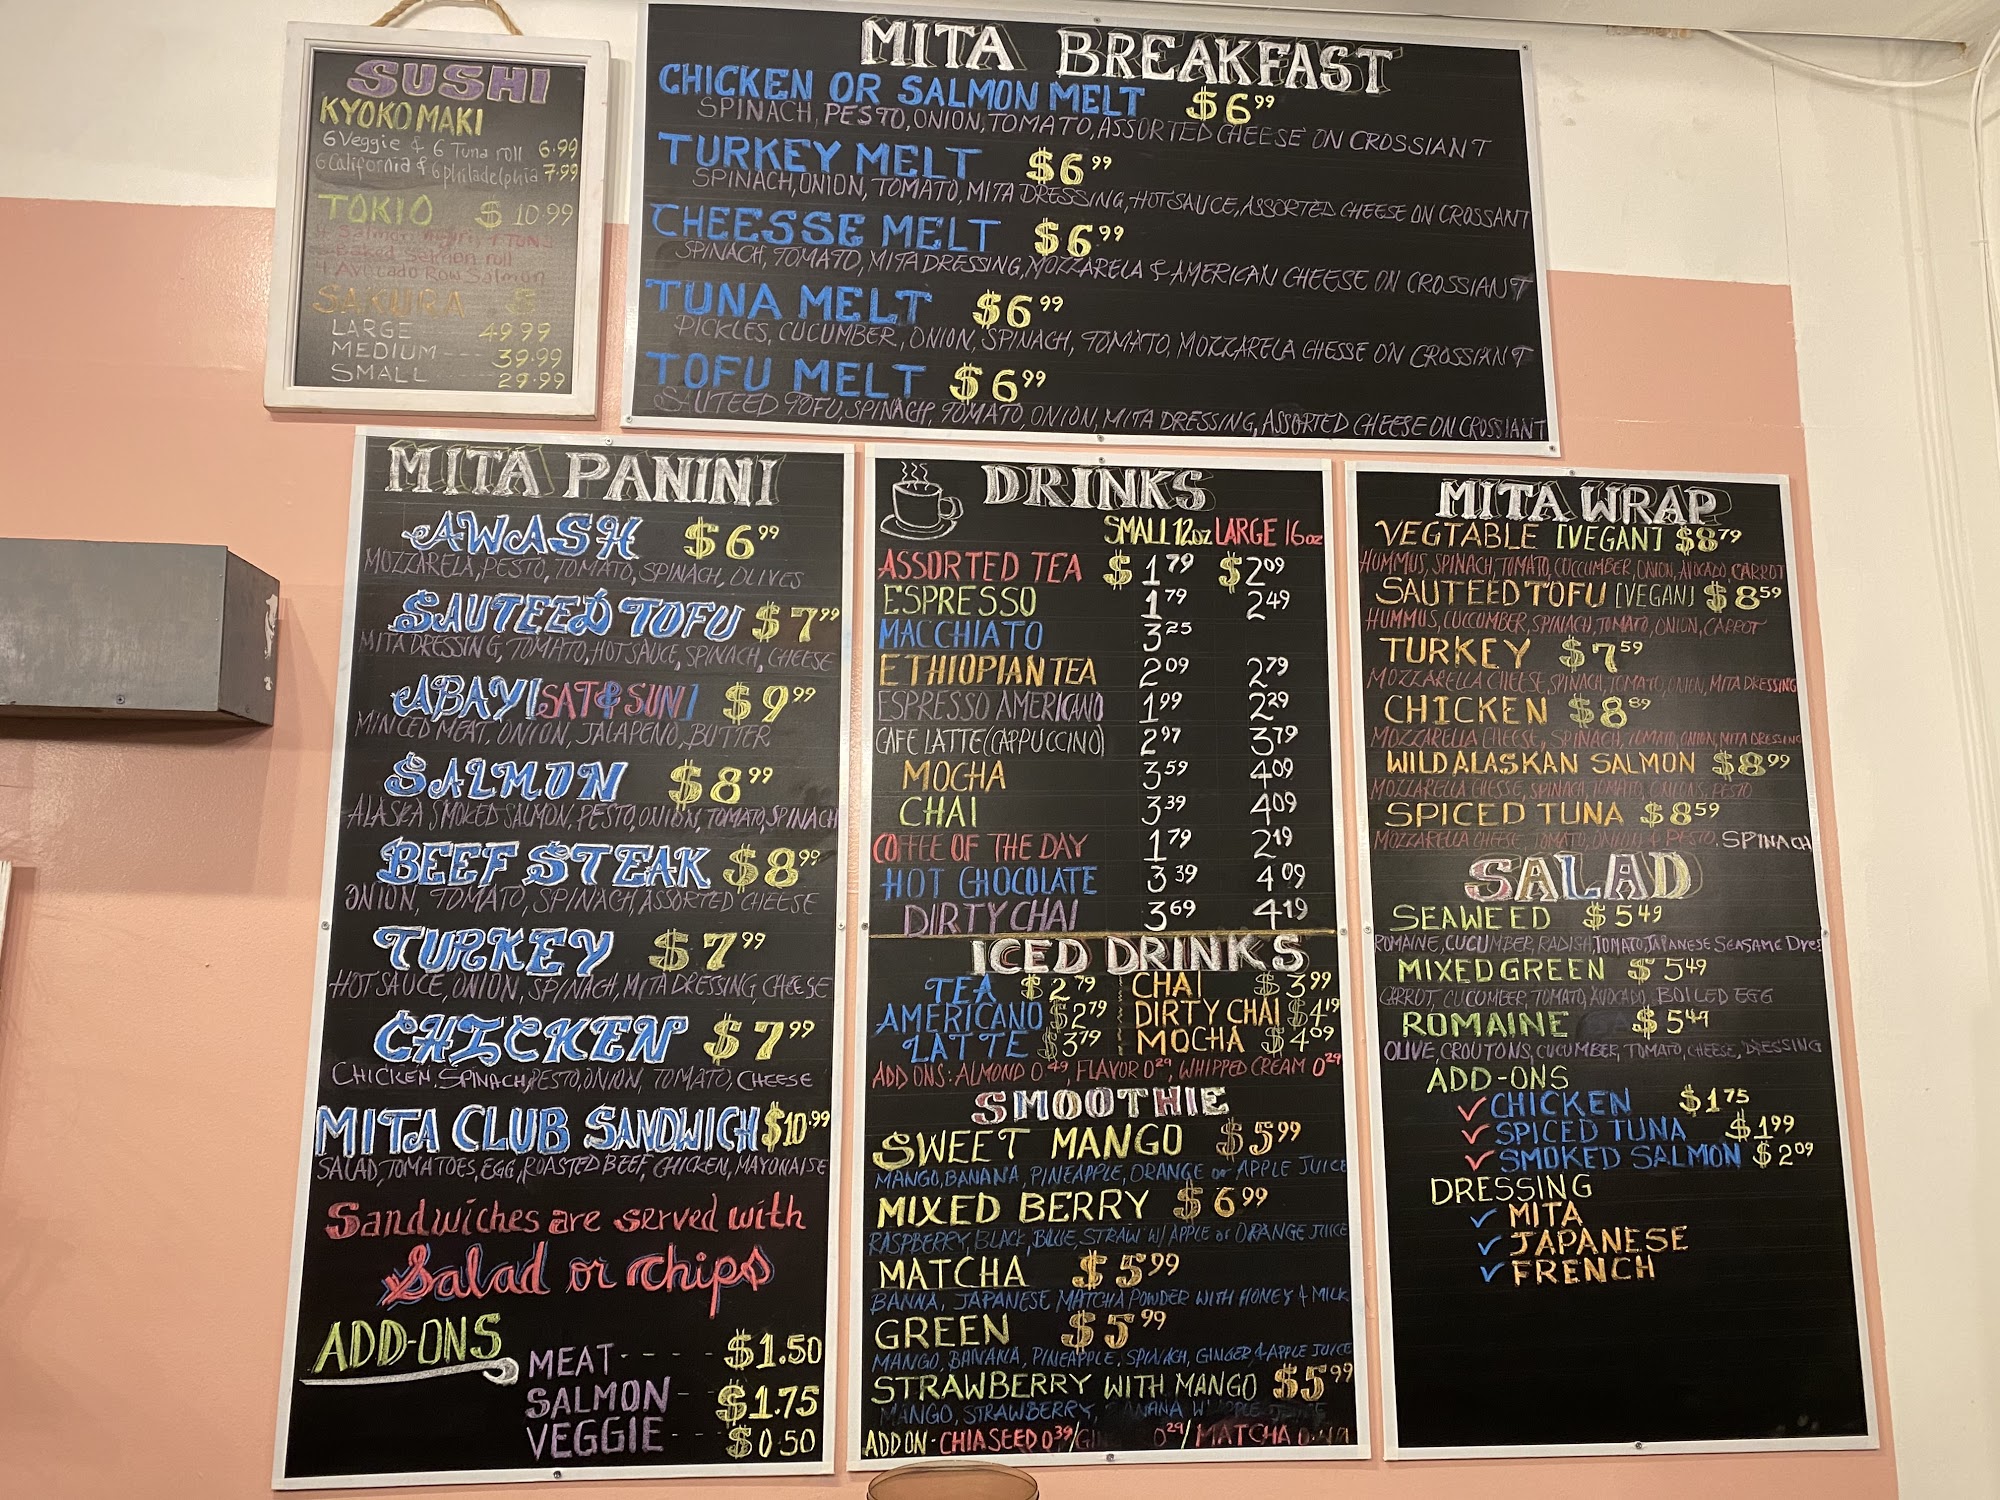 SUSHI
KYOKO MAKI
6 Veggie & 6 Tuna roll 6.99
6 California & 6 philadelphia 7.99
TOKIO $ 10.99
4 Avocado Row Salmon
SAKURA $
LARGE 49.99
MEDIUM --- 39.99
SMALL 29.99
MITA BREAKFAST
CHICKEN OR SALMON MELT $6.99
SPINACH, PESTO, ONION, TOMATO, ASSORTED CHEESE ON CROSSIANT
TURKEY MELT $6.99
SPINACH, ONION, TOMATO, MITA DRESSING, HOT SAUCE, ASSORTED CHEESE ON CROSSANT
CHEESSE MELT $6.99
SPINACH, TOMATO, MITA DRESSING, MOZZARELA & AMERICAN CHEESE ON CROSSIANT
TUNA MELT $6.99
PICKLES, CUCUMBER, ONION, SPINACH, TOMATO, MOZZARELA CHESSE ON CROSSIANT
TOFU MELT $6.99
SAUTEED TOFU, SPINACH, TOMATO, ONION, MITA DRESSING, ASSORTED CHEESE ON CROSSIANT
MITA PANINI
AWASH $6.99
MOZZARELA, PESTO, TOMATO, SPINACH, OLIVES
SAUTEED TOFU $7.99
MITA DRESSING, TOMATO, HOT SAUCE, SPINACH, CHEESE
ABAY [SAT & SUN] $9.99
MINCED MEAT, ONION, JALAPENO, BUTTER
SALMON $8.99
ALASKA SMOKED SALMON, PESTO, ONION, TOMATO, SPINACH
BEEF STEAK $8.99
ONION, TOMATO, SPINACH, ASSORTED CHEESE
TURKEY $7.99
HOT SAUCE, ONION, SPINACH, MITA DRESSING, CHEESE
CHICKEN $7.99
CHICKEN, SPINACH, PESTO, ONION, TOMATO, CHEESE
MITA CLUB SANDWICH $10.99
SALAD, TOMATOES, EGG, ROASTED BEEF, CHICKEN, MAYONAISE
Sandwiches are served with
Salad or chips
ADD-ONS
MEAT ---- $1.50
SALMON -- $1.75
VEGGIE --- $0.50
DRINKS
SMALL 12oz LARGE 16oz
ASSORTED TEA $1.79 $2.09
ESPRESSO 1.79 2.49
MACCHIATO 3.25
ETHIOPIAN TEA 2.09 2.79
ESPRESSO AMERICANO 1.99 2.29
CAFE LATTE (CAPPUCCINO) 2.97 3.79
MOCHA 3.59 4.09
CHAI 3.39 4.09
COFFEE OF THE DAY 1.79 2.19
HOT CHOCOLATE 3.39 4.09
DIRTY CHAI 3.69 4.19
ICED DRINKS
TEA $2.79 CHAI $3.99
AMERICANO $2.79 DIRTY CHAI $4.19
LATTE $3.79 MOCHA $4.09
ADD ONS: ALMOND 0.49, FLAVOR 0.29, WHIPPED CREAM 0.29
SMOOTHIE
SWEET MANGO $5.99
MANGO, BANANA, PINEAPPLE, ORANGE or APPLE JUICE
MIXED BERRY $6.99
RASPBERRY, BLACK, BLUE, STRAW W/ APPLE or ORANGE JUICE
MATCHA $5.99
BANNA, JAPANESE MATCHA POWDER WITH HONEY & MILK
GREEN $5.99
MANGO, BANANA, PINEAPPLE, SPINACH, GINGER, & APPLE JUICE
STRAWBERRY WITH MANGO $5.99
MANGO, STRAWBERRY,
ADD ON - CHIA SEED 0.39/ 0.29/ MATCHA
MITA WRAP
VEGTABLE [VEGAN] $8.79
HUMMUS, SPINACH, TOMATO, CUCCUMBER, ONION, AVOCADO, CARROT
SAUTEED TOFU [VEGAN] $8.59
HUMMUS, CUCCUMBER, SPINACH, TOMATO, ONION, CARROT
TURKEY $7.59
MOZZARELLA CHEESE, SPINACH, TOMATO, ONION, MITA DRESSING
CHICKEN $8.89
MOZZARELLA CHEESE, SPINACH, TOMATO, ONION, MITA DRESSING
WILD ALASKAN SALMON $8.99
MOZZARELLA CHEESE, SPINACH, TOMATO, ONIONS, PESTO
SPICED TUNA $8.59
MOZZARELLA CHEESE, TOMATO, ONION & PESTO, SPINACH
SALAD
SEAWEED $5.49
ROMAINE, CUCUMBER, RADISH, TOMATO, JAPANESE SEASAME DRES
MIXED GREEN $5.49
CARROT, CUCOMBER, TOMATO, AVOCADO, BOILED EGG
ROMAINE $5.49
OLIVE, CROUTONS, CUCUMBER, TOMATO, CHEESE, DRESSING
ADD-ONS
✓ CHICKEN $1.75
✓ SPICED TUNA $1.99
✓ SMOKED SALMON $2.09
DRESSING
✓ MITA
✓ JAPANESE
✓ FRENCH